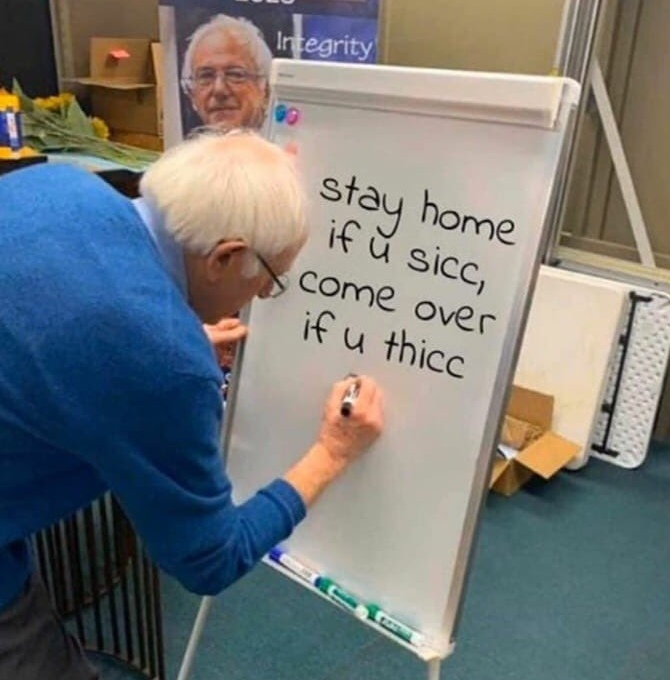 Integrity
stay home
if u sicc,
come over
if u thicc